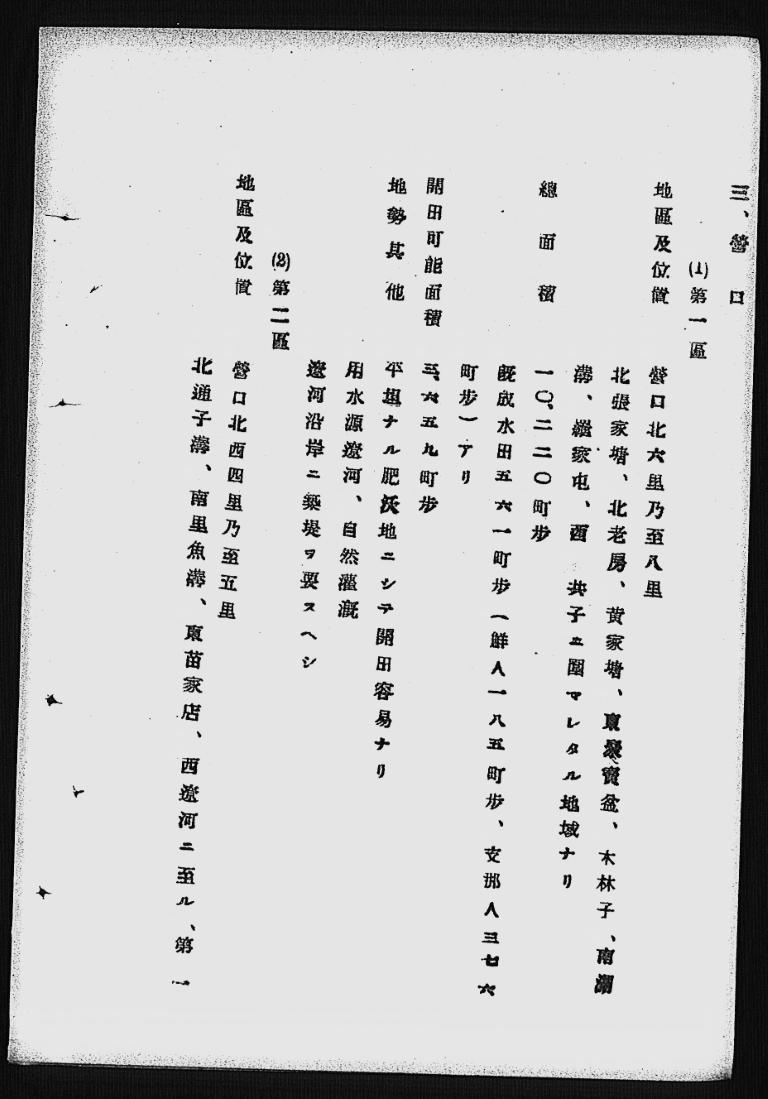 三、營口
(1)第一區
地區及位置
營口北六里乃至八里
北張家塘、北老房、黄家塘、東聚寳盆、木林子、南湖
溝、 家屯、西 共子ニ圍マレタル地域ナリ
總面積
一〇、二二〇町步
既成水田五六一町步(鮮人一八五町步、支那人三七六
町步)アリ
開田可能面積
三、六五九町步
地勢其他
平坦ナル肥沃地ニシテ開田容易ナリ
用水源遼河、自然灌漑
遼河沿岸ニ築堤ヲ要スヘシ
(2)第二區
地區及位置
營口北西四里乃至五里
北通子溝、南里魚溝、東苗家店、西遼河ニ至ル、第一